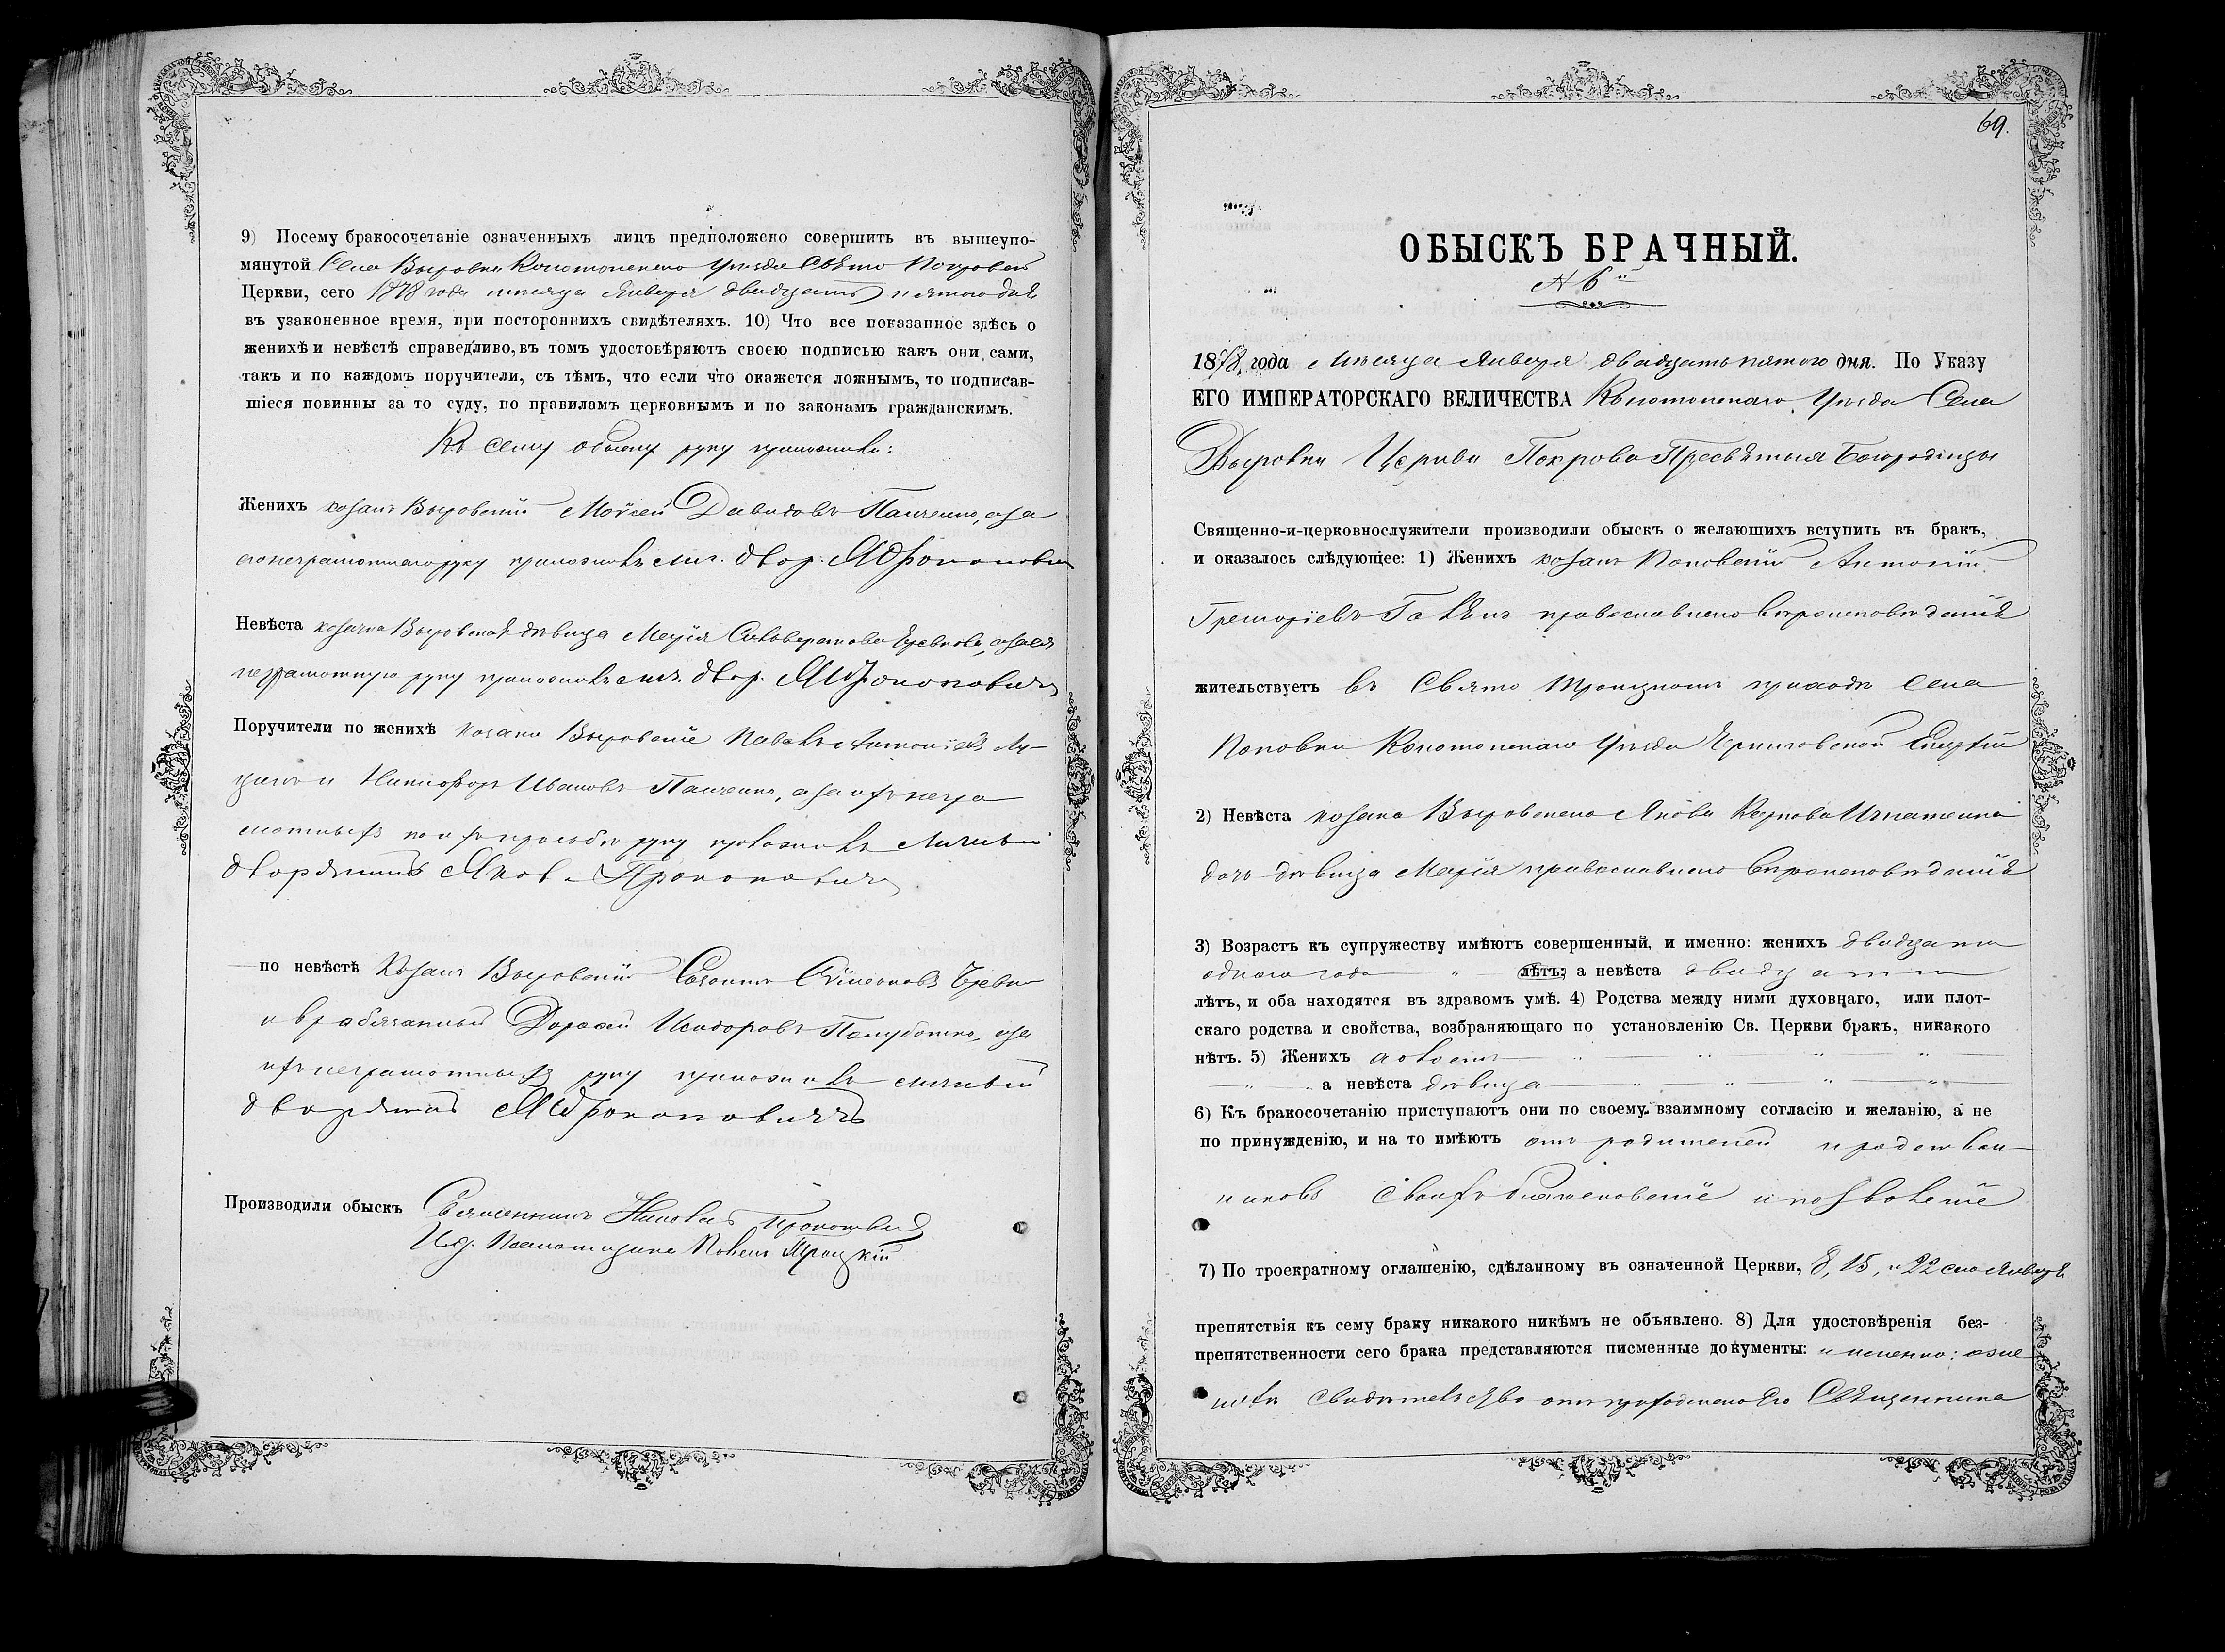 9) Посему бракосочетаніе означенныхъ лицъ предположено совершить въ вышеупо-
мянутой Села Выровки Конотопскаго Уѣзда Свято Покровской
Церкви, сего 1878 года мѣсяца Января двадцать пятаго дня
въ узаконенное время, при постороннихъ свидѣтеляхъ. 10) Что все показанное здѣсь о
женихѣ и невѣстѣ справедливо, въ томъ удостовѣряютъ своею подписью какъ они сами,
такъ и по каждомъ поручители, съ тѣмъ, что если что окажется ложнымъ, то подписав-
шіеся повинны за то суду, по правиламъ церковнымъ и по законамъ гражданскимъ.
Къ сему обыску руку приложили:
Женихъ козакъ Выровскій Моѵсей Давидовъ Панченко, а за
его неграмотнаго руку приложилъ лич. двор. Я Прокоповичъ
Невѣста козачка Выровская дѣвица Марія Сильвестрова, а за ея
неграмотную руку приложилъ лич. двор. Я Прокоповичъ
Поручители по женихѣ козаки Выровскіе Павелъ Антоніевъ Лу-
ценко и Никифоръ Ивановъ Панченко, а за ихъ негра
мотныхъ по ихъ просьбѣ руку приложилъ Личный
дворянинъ Яковъ Прокоповичъ
по невѣстѣ Козакъ Выровскій Созонтъ Сѵмеоновъ
и Дорофей Исидоровъ Полуботко, а за
ихъ неграмотныхъ руку приложилъ личный
дворянинъ Я Прокоповичъ
Производили обыскъ Священникъ Николай
И.д. Псаломщика Павелъ Троцкій
69.
ОБЫСКЪ БРАЧНЫЙ.
№ 6й
1878 года Мѣсяца Января двадцать пятаго дня. По Указу
ЕГО ИМПЕРАТОРСКАГО ВЕЛИЧЕСТВА Конотопскаго Уѣзда Села
Выровки Церкви Покрова Пресвятыя Богородицы
Священно-и-церковнослужители производили обыскъ о желающихъ вступить въ бракъ,
и оказалось слѣдующее: 1) Женихъ козакъ Поповскій Антоній
Григоріевъ православнаго вѣроисповѣданія
жительствуетъ въ Свято Троицкомъ приходѣ Села
Поповки Конотопскаго Уѣзда Черниговской Епархіи
2) Невѣста козака Выровскаго Якова Карпова Игнатенка
дочь дѣвица Марія православнаго вѣроисповѣданія
3) Возрастъ къ супружеству имѣютъ совершенный, и именно: женихъ двадцати
одного года " лѣтъ; а невѣста двадцати
лѣтъ, и оба находятся въ здравомъ умѣ. 4) Родства между ними духовнаго, или плот-
скаго родства и свойства, возбраняющаго по установленію Св. Церкви бракъ, никакого
нѣтъ. 5) Женихъ холостъ
а невѣста дѣвица
6) Къ бракосочетанію приступаютъ они по своему взаимному согласію и желанію, а не
по принужденію, и на то имѣютъ отъ родителей и родствен-
никовъ своихъ благословеніе и позволеніе
7) По троекратному оглашенію, сдѣланному въ означенной Церкви, 8, 15, и 22 сего Января
препятствія къ сему браку никакого никѣмъ не объявлено. 8) Для удостовѣренія без-
препятственности сего брака представляются писменные документы: и именно: о же
нихѣ свидѣтельство отъ приходскаго его Священника